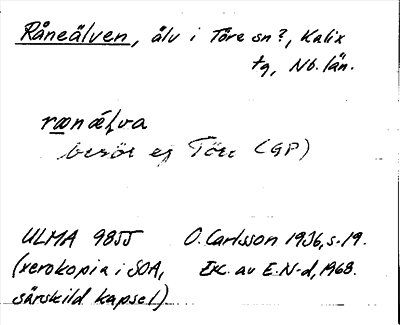 Råneälven, älv i Töre sn?, Kalix
tg, Nb. län.
rænálva
besöt ej Töre (GP)
ULMA 9855 O. Carlsson 1936, s. 19.
(xerokopia i SOA, Exc. av E. N-d, 1968.
särskild kapsel)